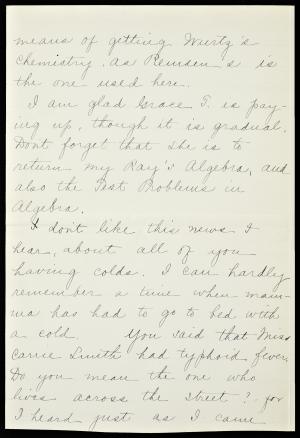 means of getting Wurtz's
Chemistry. as Remsen's is
the one used here.
I am glad Grace T. is pay-
ing up, though it is gradual.
Dont forget that she is to
return my Ray's Algebra, and
also the Test Problems in
Algebra.
I dont like this news I
hear, about all of you
having colds. I can hardly
remember a time when mam-
ma has had to go to bed with
a cold. You said that Miss
Carrie Smith had typhoid fever.
Do you mean the one who
lives across the street? for
I heard just as I came